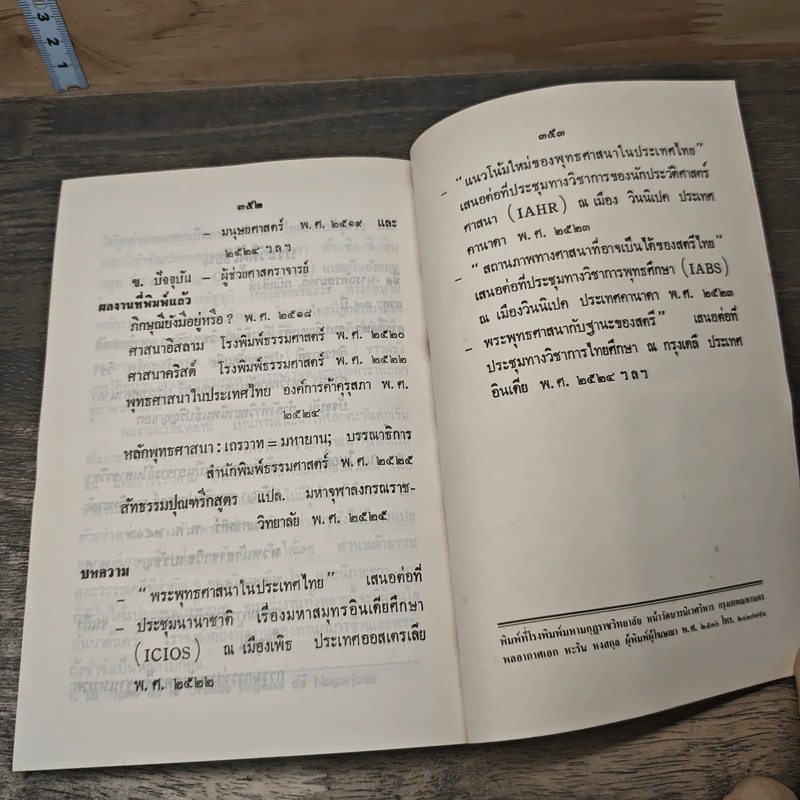 ๓๕๒
– มนุษยศาสตร์ พ.ศ. ๒๕๑๙ และ
๒๕๒๔ ฯลฯ
ข. ปัจจุบัน – ผู้ช่วยศาสตราจารย์
ผลงานที่พิมพ์แล้ว
ภิกษุณียังมีอยู่หรือ? พ.ศ. ๒๕๑๘
ศาสนาอิสลาม โรงพิมพ์ธรรมศาสตร์ พ.ศ. ๒๕๒๐
ศาสนาคริสต์ โรงพิมพ์ธรรมศาสตร์ พ.ศ. ๒๕๒๒
พุทธศาสนาในประเทศไทย องค์การค้าคุรุสภา พ.ศ.
๒๕๒๔
หลักพุทธศาสนา : เถรวาท = มหายาน; บรรณาธิการ
สำนักพิมพ์ธรรมศาสตร์ พ.ศ. ๒๕๒๕
สัทธรรมปุณฑริกสูตร แปล. มหาจุฬาลงกรณราช-
วิทยาลัย พ.ศ. ๒๕๒๕
บทความ
– “พระพุทธศาสนาในประเทศไทย” เสนอต่อที่
– ประชุมนานาชาติ เรื่องมหาสมุทรอินเดียศึกษา
(ICIOS) ณ เมืองเพิธ ประเทศออสเตรเลีย
พ.ศ. ๒๕๒๒
๓๕๓
– “แนวโน้มใหม่ของพุทธศาสนาในประเทศไทย”
เสนอต่อที่ประชุมทางวิชาการของนักประวัติศาสตร์
ศาสนา (IAHR) ณ เมือง วินนิเปค ประเทศ
คานาดา พ.ศ. ๒๕๒๓
– “สถานภาพทางศาสนาที่อาจเป็นได้ของสตรีไทย”
เสนอต่อที่ประชุมทางวิชาการพุทธศึกษา (IABS)
ณ เมืองวินนิเปค ประเทศคานาดา พ.ศ. ๒๕๒๓
– พระพุทธศาสนากับฐานะของสตรี” เสนอต่อที่
ประชุมทางวิชาการไทยศึกษา ณ กรุงเดลี ประเทศ
อินเดีย พ.ศ. ๒๕๒๔ ฯลฯ
พิมพ์ที่โรงพิมพ์มหามกุฏราชวิทยาลัย หน้าวัดบวรนิเวศวิหาร กรุงเทพมหานคร
พลอากาศเอก หะริน หงสกุล ผู้พิมพ์ผู้โฆษณา พ.ศ.